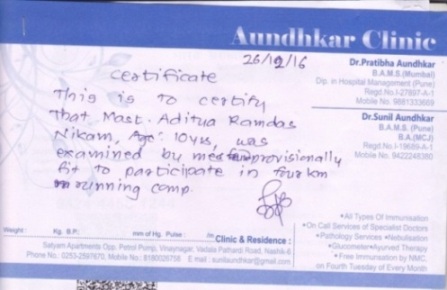 Aundhkar Clinic
26/12/16
Dr.Pratibha Aundhkar
B.A.M.S.(Mumbai)
Dip. in Hospital Management (Pune)
Regd.No.I-27897-A-1
Mobile No. 9881333669
Dr.Sunil Aundhkar
B.A.M.S. (Pune)
B.A.(MCJ)
Regd.No.I-19689-A-1
Mobile No. 9422248380
Certificate
This is to certify
that Mast. Aditya Ramdas
Nikam, Age: 10yrs, was
examined by me provisionally
fit to participate in four km
running comp.
•All Types Of Immunisation
•On Call Services of Specialist Doctors
•Pathology Services •Ambulisation
•Glucometer•Ayurved Therapy
•Free Immunisation by NMC.
on Fourth Tuesday of Every Month
Weight: Kg. B.P.: mm of Hg. Pulse: /m
Clinic & Residence :
Satyam Apartments Opp. Petrol Pump, Vinaynagar, Vadala Pathardi Road, Nashik-6
Phone No.: 0253-2597670, Mobile No.: 8180026756 E.mail : sunilaundhkar@gmail.com